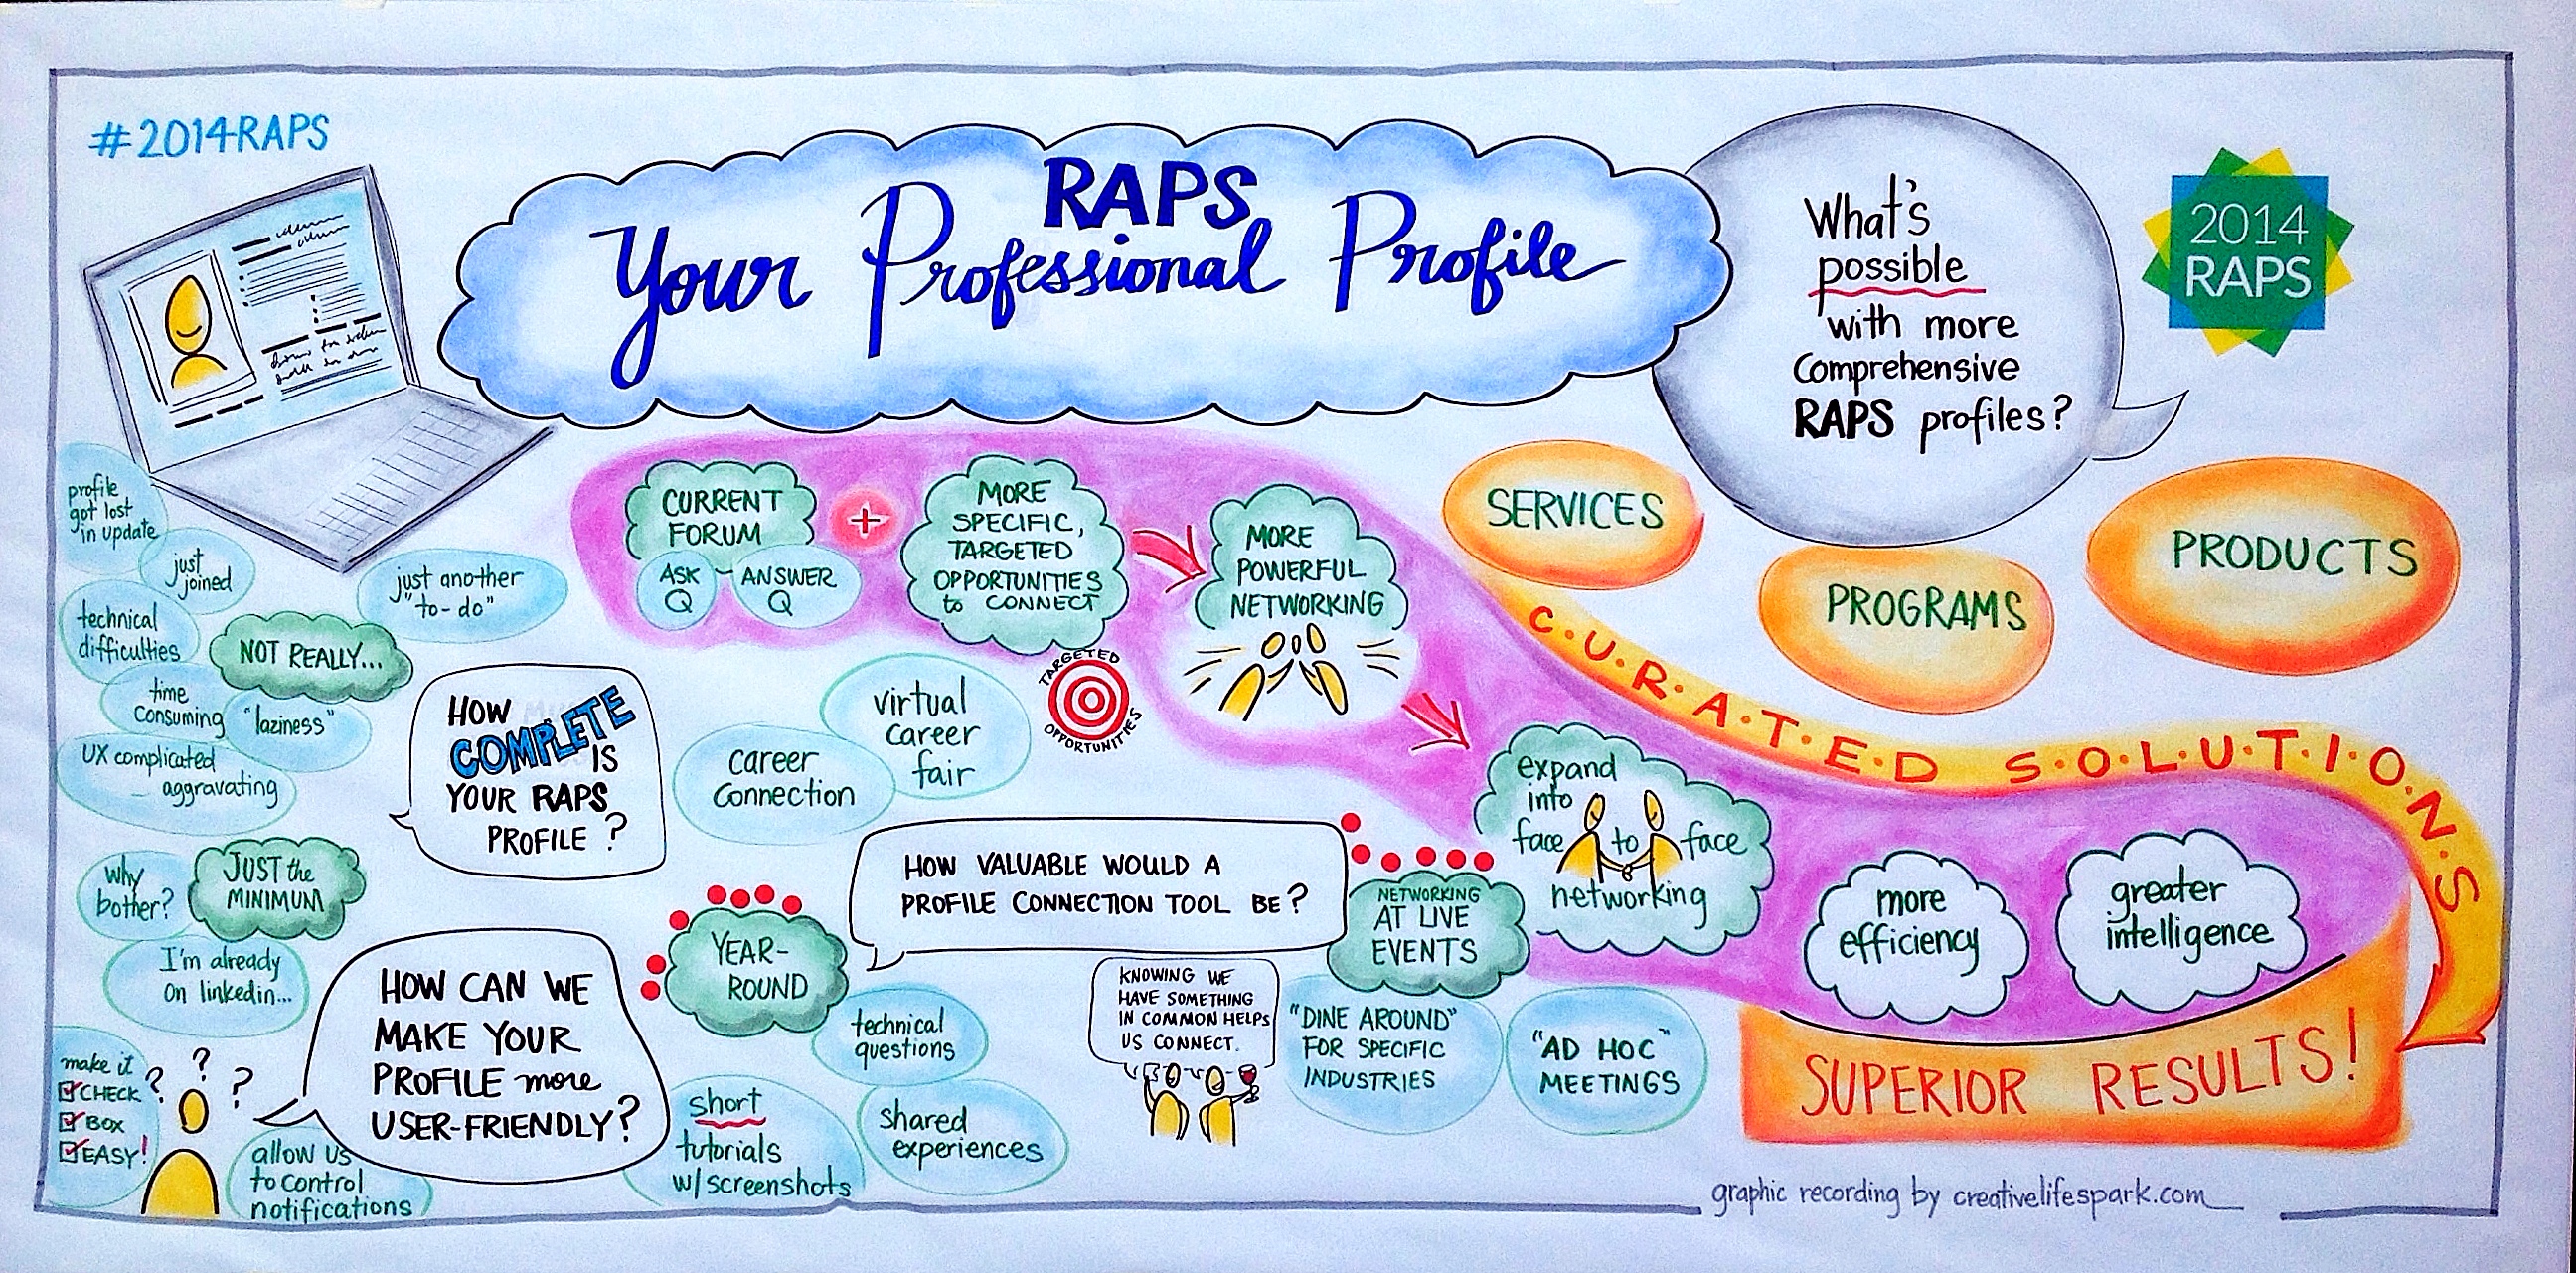 #2014RAPS
RAPS
Your Professional Profile
What's
possible
with more
Comprehensive
RAPS profiles?
2014
RAPS
profile
got lost
in update
just
joined
just another
"to-do"
technical
difficulties
NOT REALLY...
time
consuming
"laziness"
UX complicated
aggravating
HOW
COMPLETE
IS
YOUR RAPS
PROFILE?
why
bother?
JUST the
MINIMUM
I'm already
on linkedin...
HOW CAN WE
MAKE YOUR
PROFILE more
USER-FRIENDLY?
make it
CHECK
BOX
EASY!
? ? ?
allow us
to control
notifications
CURRENT
FORUM
ASK
Q
ANSWER
Q
+
MORE
SPECIFIC,
TARGETED
OPPORTUNITIES
to CONNECT
MORE
POWERFUL
NETWORKING
TARGETED
OPPORTUNITIES
virtual
career
fair
career
connection
HOW VALUABLE WOULD A
PROFILE CONNECTION TOOL BE?
YEAR-
ROUND
technical
questions
short
tutorials
w/screenshots
shared
experiences
KNOWING WE
HAVE SOMETHING
IN COMMON HELPS
US CONNECT.
NETWORKING
AT LIVE
EVENTS
"DINE AROUND"
FOR SPECIFIC
INDUSTRIES
"AD HOC"
MEETINGS
expand
into
face to face
networking
SERVICES
PROGRAMS
PRODUCTS
C·U·R·A·T·E·D S·O·L·U·T·I·O·N·S
more
efficiency
greater
intelligence
SUPERIOR RESULTS!
graphic recording by creativelifespark.com